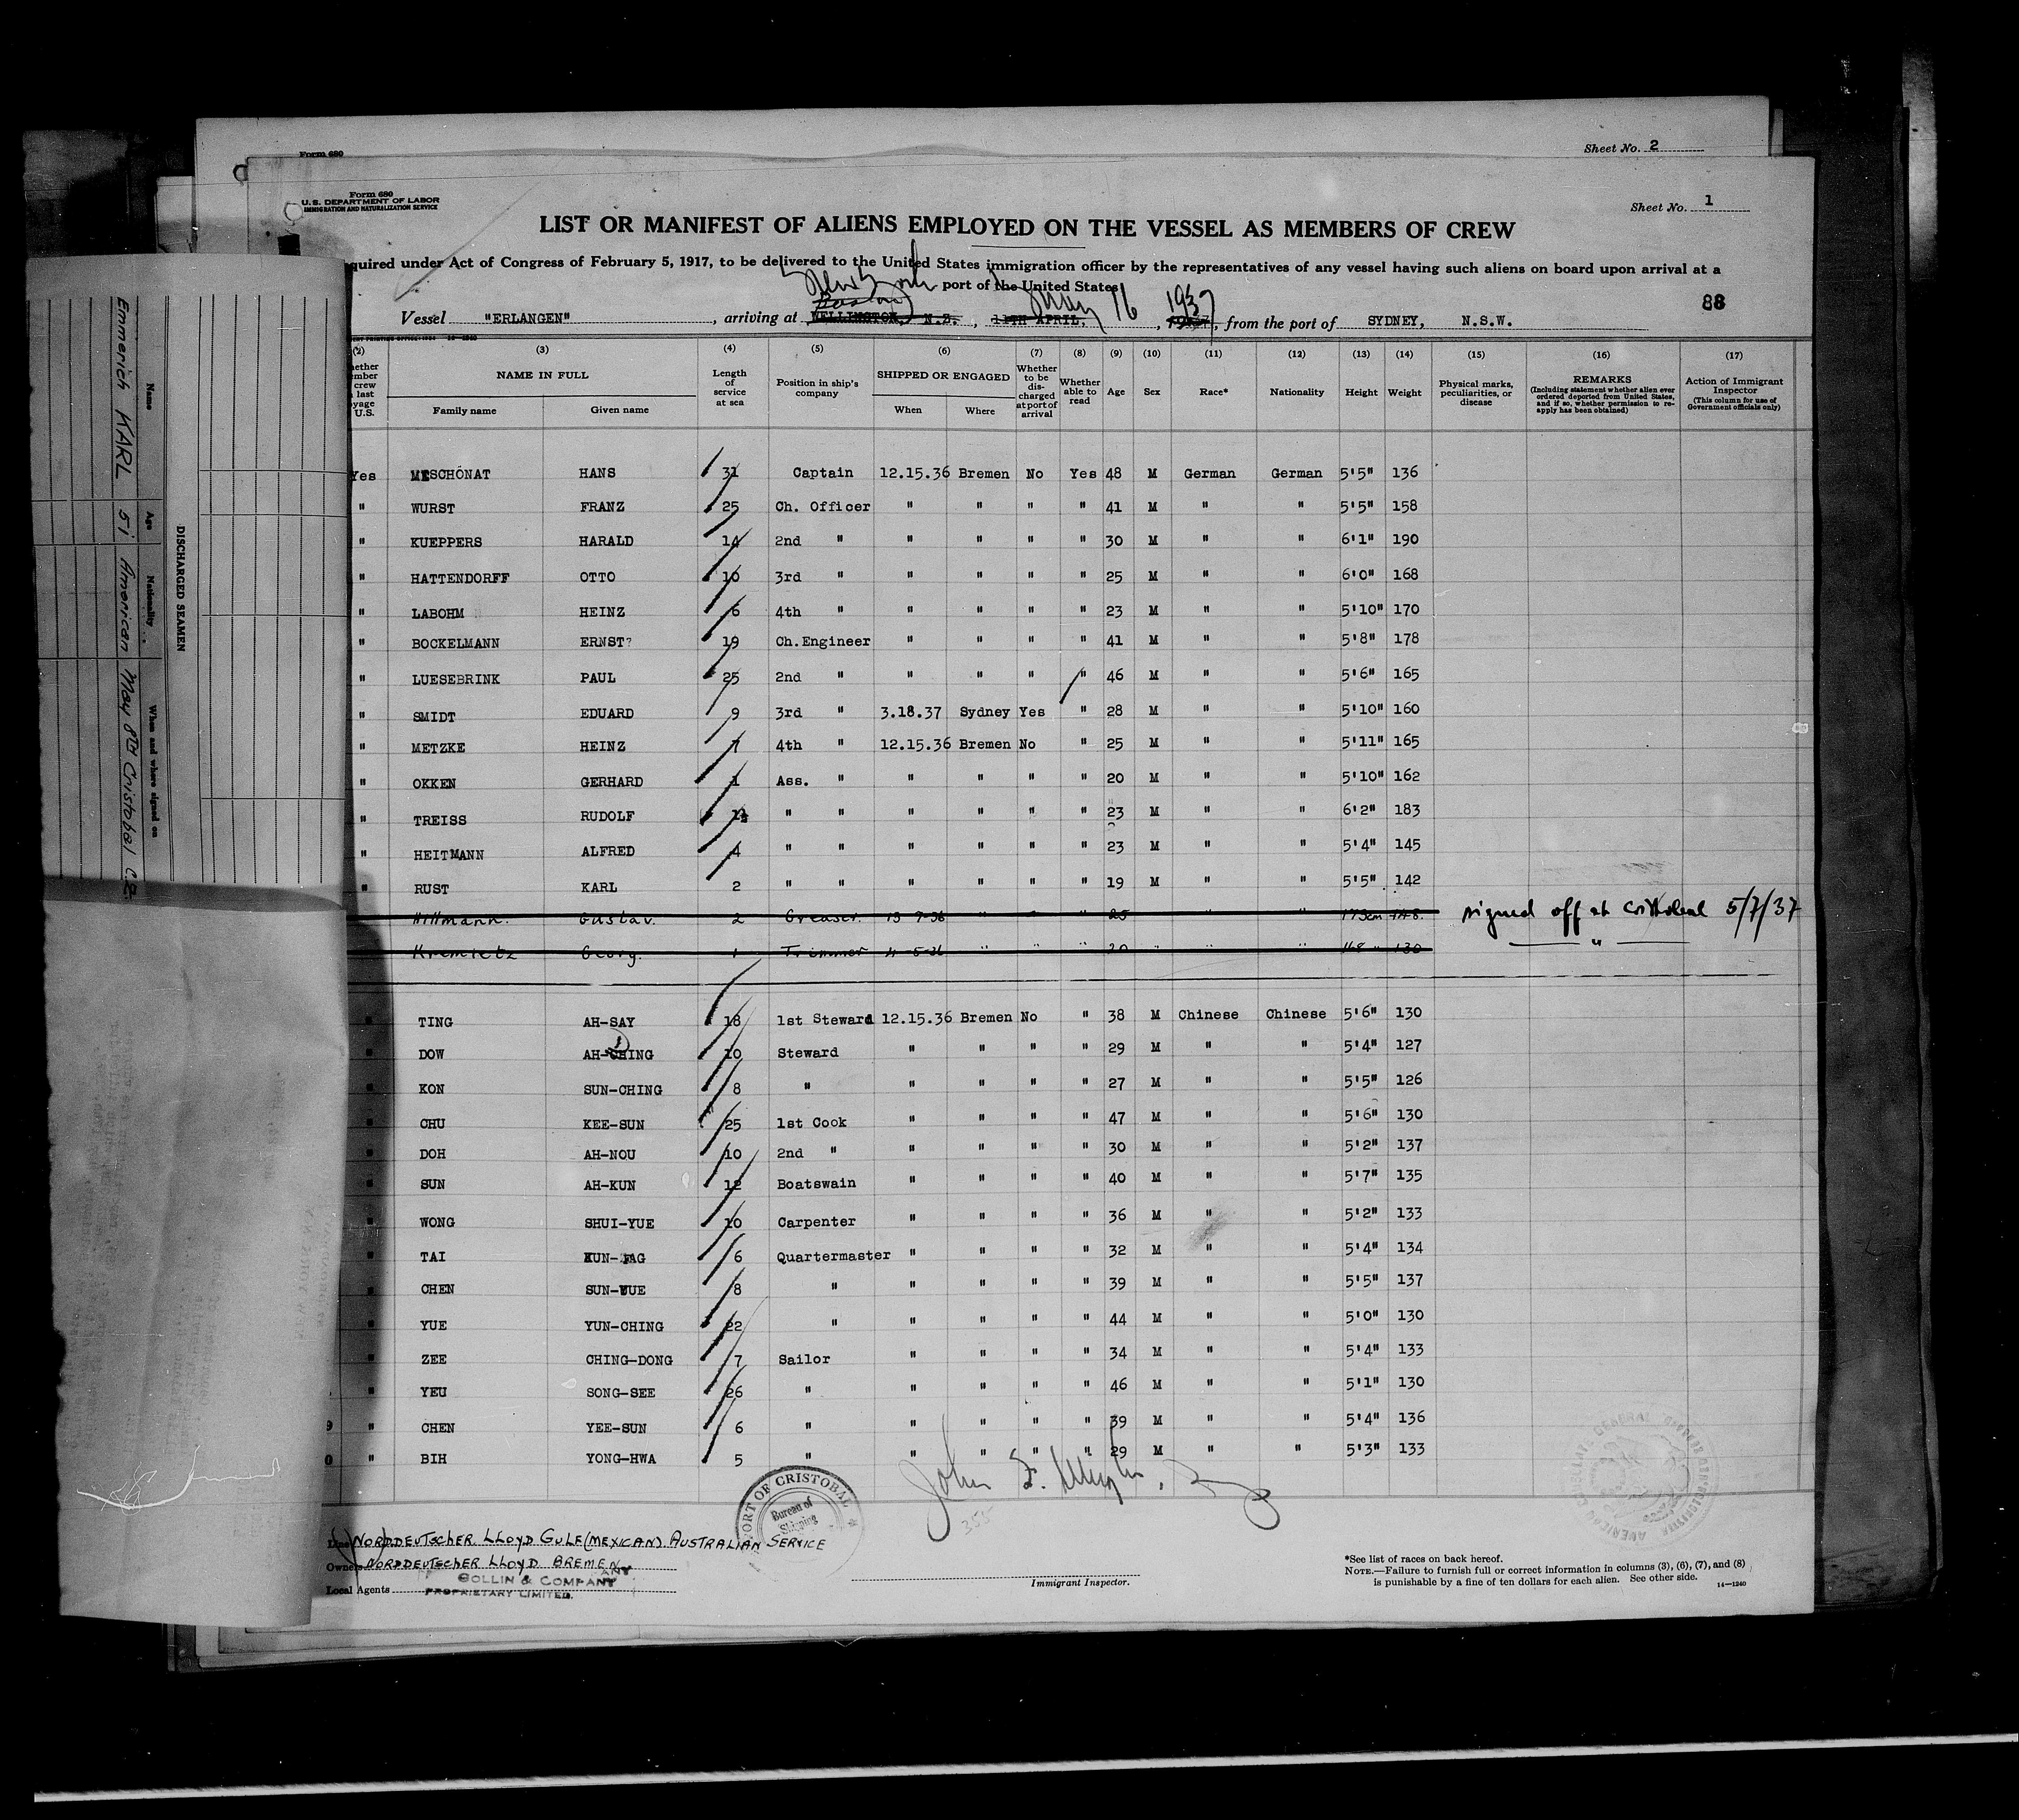 Form 680
Sheet No. 2
Form 680
U.S. DEPARTMENT OF LABOR
IMMIGRATION AND NATURALIZATION SERVICE
Sheet No. 1
LIST OR MANIFEST OF ALIENS EMPLOYED ON THE VESSEL AS MEMBERS OF CREW
quired under Act of Congress of February 5, 1917, to be delivered to the United States immigration officer by the representatives of any vessel having such aliens on board upon arrival at a
New York port of the United States
Boston May 16 1937 88
Vessel "ERLANGEN", arriving at WELLINGTON, N.Z., 11TH APRIL, 1937, from the port of SYDNEY, N.S.W.
(2) (3) (4) (5) (6) (7) (8) (9) (10) (11) (12) (13) (14) (15) (16) (17)
hether ember crew last yage U.S. NAME IN FULL Family name Given name Length of service at sea Position in ship's company SHIPPED OR ENGAGED When Where Whether to be discharged at port of arrival Whether able to read Age Sex Race* Nationality Height Weight Physical marks, peculiarities, or disease REMARKS (Including statement whether alien ever ordered deported from United States, and if so, whether permission to re-apply has been obtained) Action of Immigrant Inspector (This column for use of Government officials only)
Yes MESCHÖNAT HANS 31 Captain 12.15.36 Bremen No Yes 48 M German German 5'5" 136
" WURST FRANZ 25 Ch. Officer " " " " 41 M " " 5'5" 158
" KUEPPERS HARALD 14 2nd " " " " " 30 M " " 6'1" 190
" HATTENDORFF OTTO 10 3rd " " " " " 25 M " " 6'0" 168
" LABOHM HEINZ 6 4th " " " " " 23 M " " 5'10" 170
" BOCKELMANN ERNST? 19 Ch.Engineer " " " " 41 M " " 5'8" 178
" LUESEBRINK PAUL 25 2nd " " " " " 46 M " " 5'6" 165
" SMIDT EDUARD 9 3rd " 3.18.37 Sydney Yes " 28 M " " 5'10" 160
" METZKE HEINZ 7 4th " 12.15.36 Bremen No " 25 M " " 5'11" 165
" OKKEN GERHARD 1 Ass. " " " " " 20 M " " 5'10" 162
" TREISS RUDOLF " " " " " " 23 M " " 6'2" 183
" HEITMANN ALFRED 4 " " " " " " 23 M " " 5'4" 145
" RUST KARL 2 " " " " " " 19 M " " 5'5" 142
Hillmann. Gustav. 2 Greaser. 13-7-36 " " " 25 " " 173cm 148. signed off at Cristobal 5/7/37
Kremietz Georg. 1 Trimmer 4-5-36 " " " 20 " " " 168 " 130 "
" TING AH-SAY 18 1st Steward 12.15.36 Bremen No " 38 M Chinese Chinese 5'6" 130
" DOW AH-CHING 10 Steward " " " " 29 M " " 5'4" 127
" KON SUN-CHING 8 " " " " " 27 M " " 5'5" 126
" CHU KEE-SUN 25 1st Cook " " " " 47 M " " 5'6" 130
" DOH AH-NOU 10 2nd " " " " " 30 M " " 5'2" 137
" SUN AH-KUN 12 Boatswain " " " " 40 M " " 5'7" 135
" WONG SHUI-YUE 10 Carpenter " " " " 36 M " " 5'2" 133
" TAI KUN-FAG 6 Quartermaster " " " " 32 M " " 5'4" 134
" CHEN SUN-YUE 8 " " " " " 39 M " " 5'5" 137
" YUE YUN-CHING 22 " " " " " 44 M " " 5'0" 130
" ZEE CHING-DONG 7 Sailor " " " " 34 M " " 5'4" 133
" YEU SONG-SEE 26 " " " " " 46 M " " 5'1" 130
9 " CHEN YEE-SUN 6 " " " " " 39 M " " 5'4" 136
0 " BIH YONG-HWA 5 " " " " " 29 M " " 5'3" 133
PORT OF CRISTOBAL
Bureau of Shipping
John F.
355
Line NORDDEUTSCHER LLOYD GULF (MEXICAN) AUSTRALIAN SERVICE
Owners NORDDEUTSCHER LLOYD BREMEN
Local Agents GOLLIN & COMPANY
PROPRIETARY LIMITED.
Immigrant Inspector.
*See list of races on back hereof.
NOTE.—Failure to furnish full or correct information in columns (3), (6), (7), and (8)
is punishable by a fine of ten dollars for each alien. See other side. 14—1240
AMERICAN CONSULATE GENERAL
DISCHARGED SEAMEN
Name Age Nationality When and where signed on
Emmerich KARL 51 American May 8TH Cristobal C.Z.